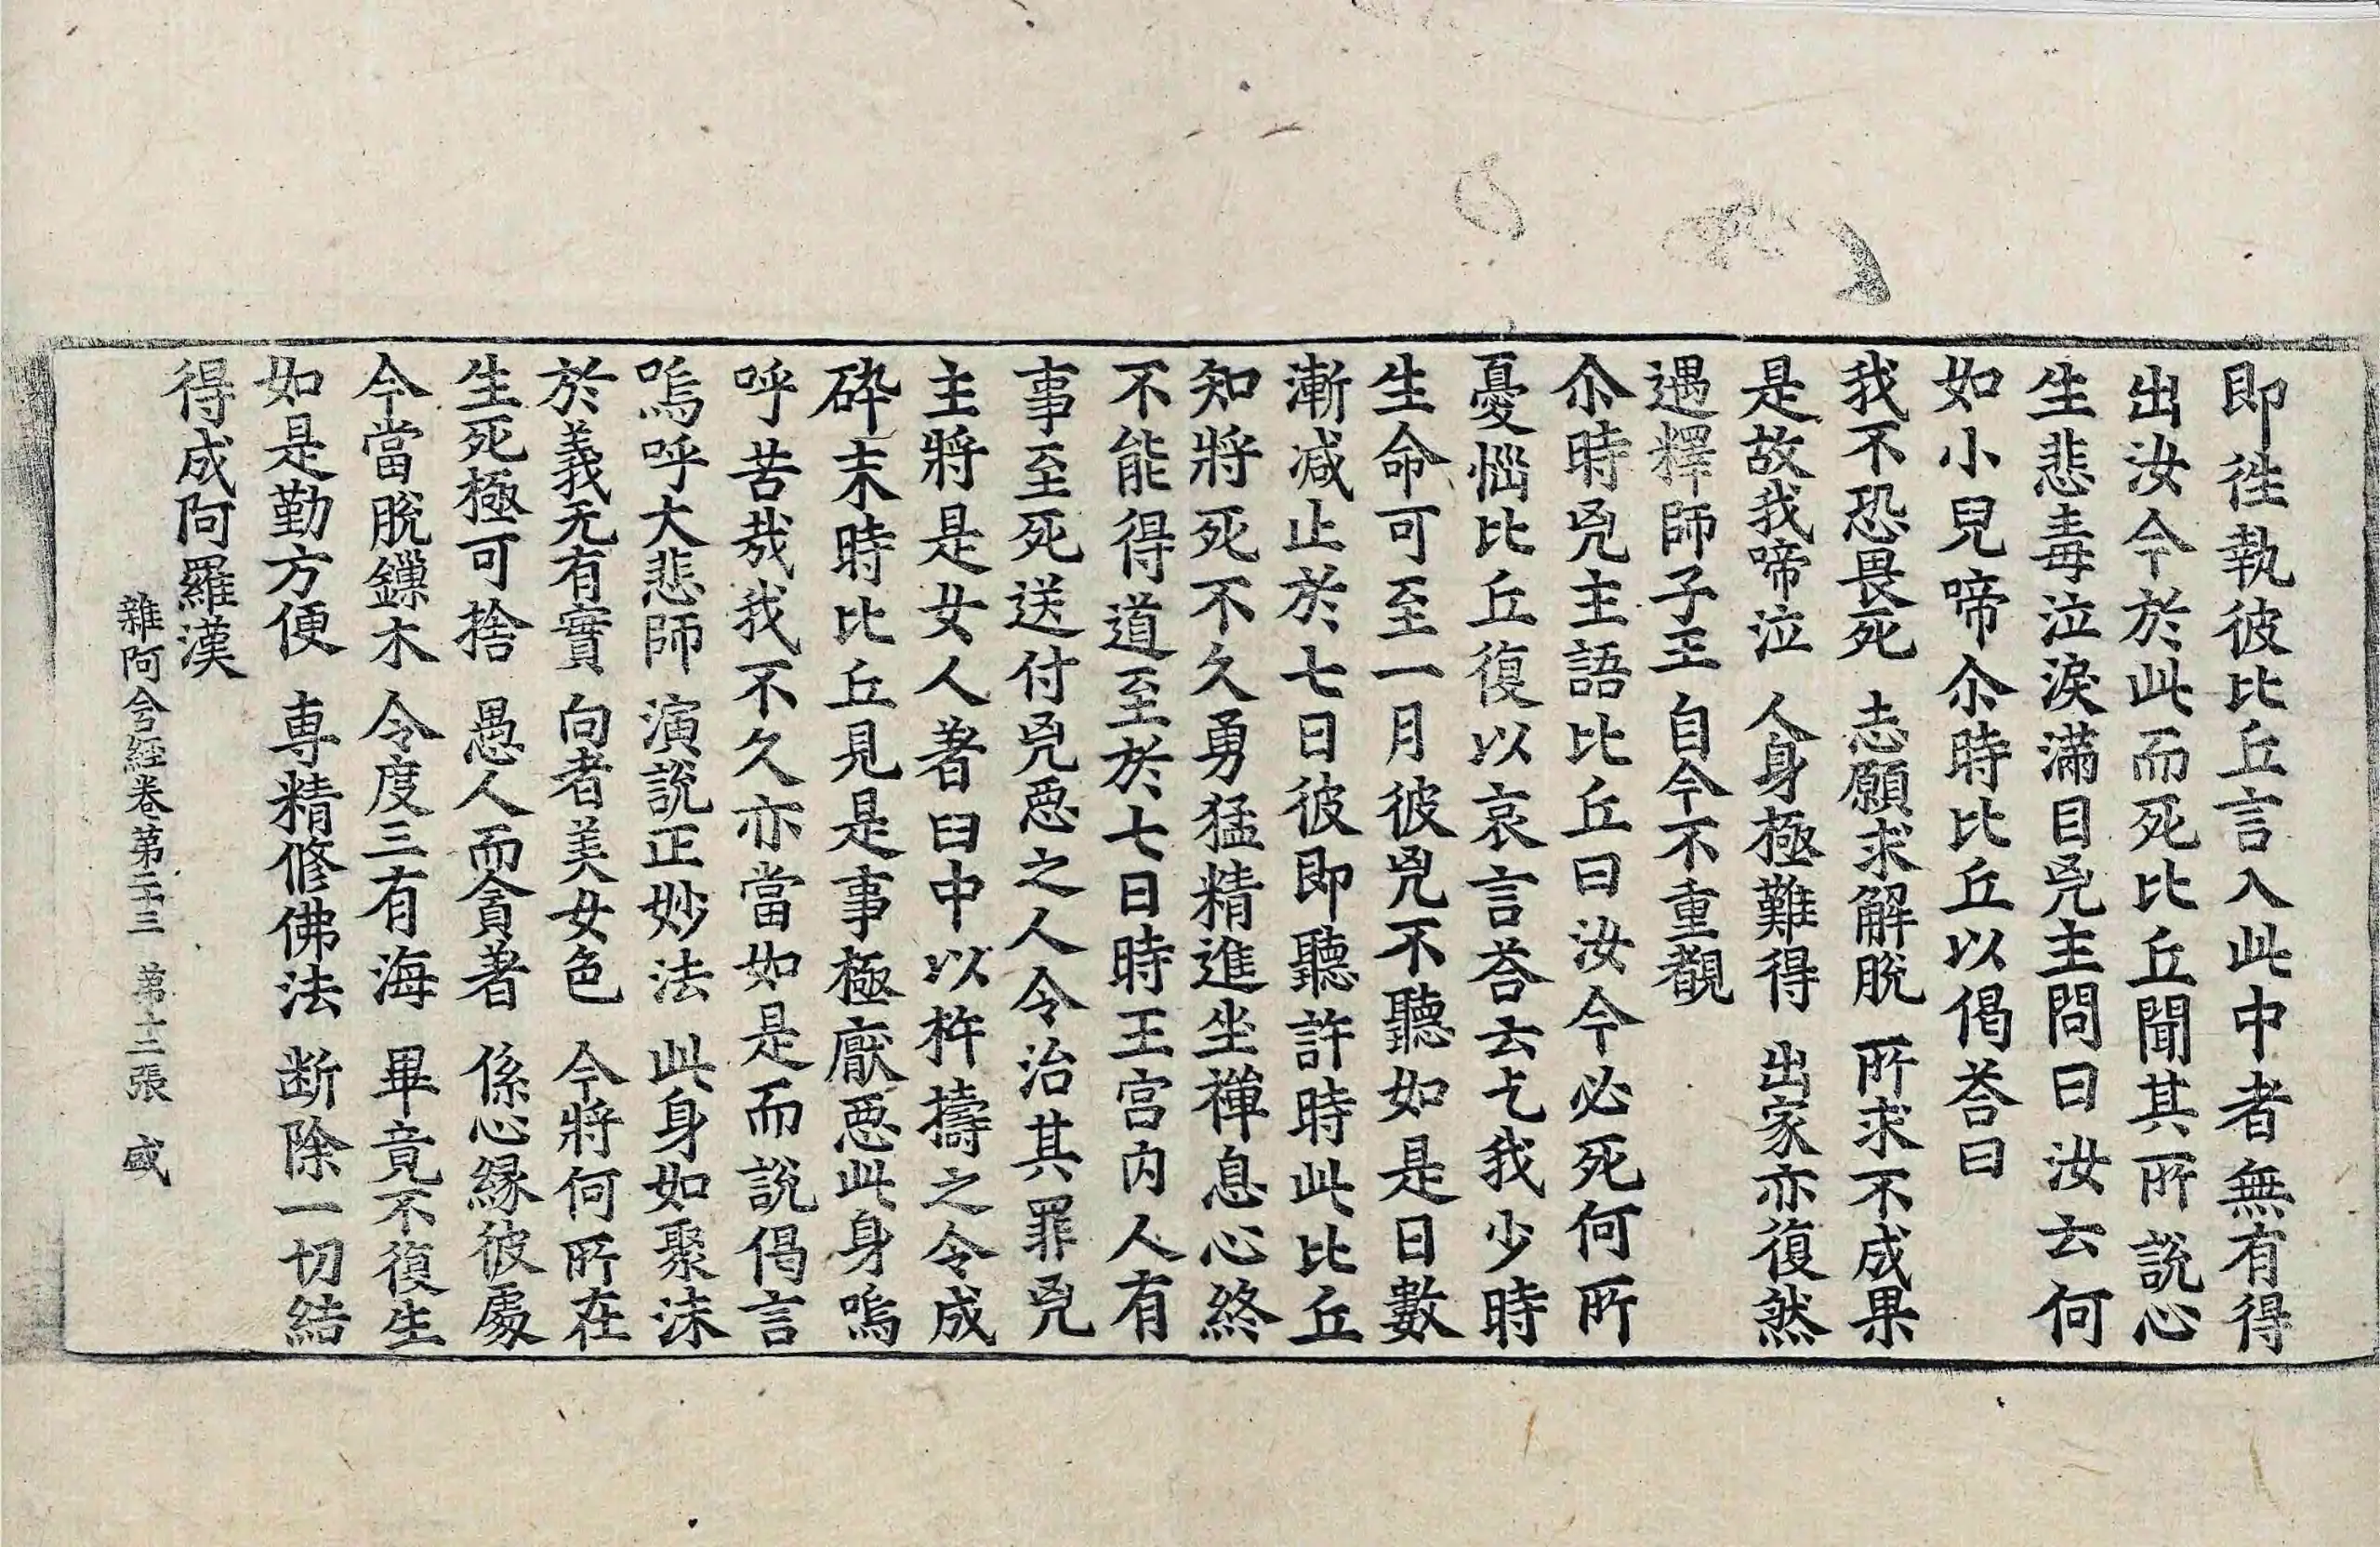 即徃執彼比丘言入此中者無有得
出汝今於此而死比丘聞其所說心
生悲毒泣淚滿目兇主問曰汝云何
如小兒啼尒時比丘以偈荅曰
我不恐畏死　志願求解脫　所求不成果
是故我啼泣　人身極難得　出家亦復然
遇釋師子王　自今不重覩
尒時兇主語比丘曰汝今必死何所
憂惱比丘復以哀言荅云乞我少時
生命可至一月彼兇不聽如是日數
漸減止於七日彼即聽許時此比丘
知將死不久勇猛精進坐禪息心終
不能得道至於七日時王宮內人有
事至死送付兇惡之人令治其罪兇
主將是女人著臼中以杵擣之令成
碎末時比丘見是事極厭惡此身嗚
呼苦哉我不久亦當如是而說偈言
嗚呼大悲師　演說正妙法　此身如聚沫
於義无有實　向者美女色　今將何所在
生死極可捨　愚人而貪著　係心緣彼處
今當脫鏁木　令度三有海　畢竟不復生
如是勤方便　專精修佛法　斷除一切結
得成阿羅漢
雜阿含經卷第二十三　第十二張　咸